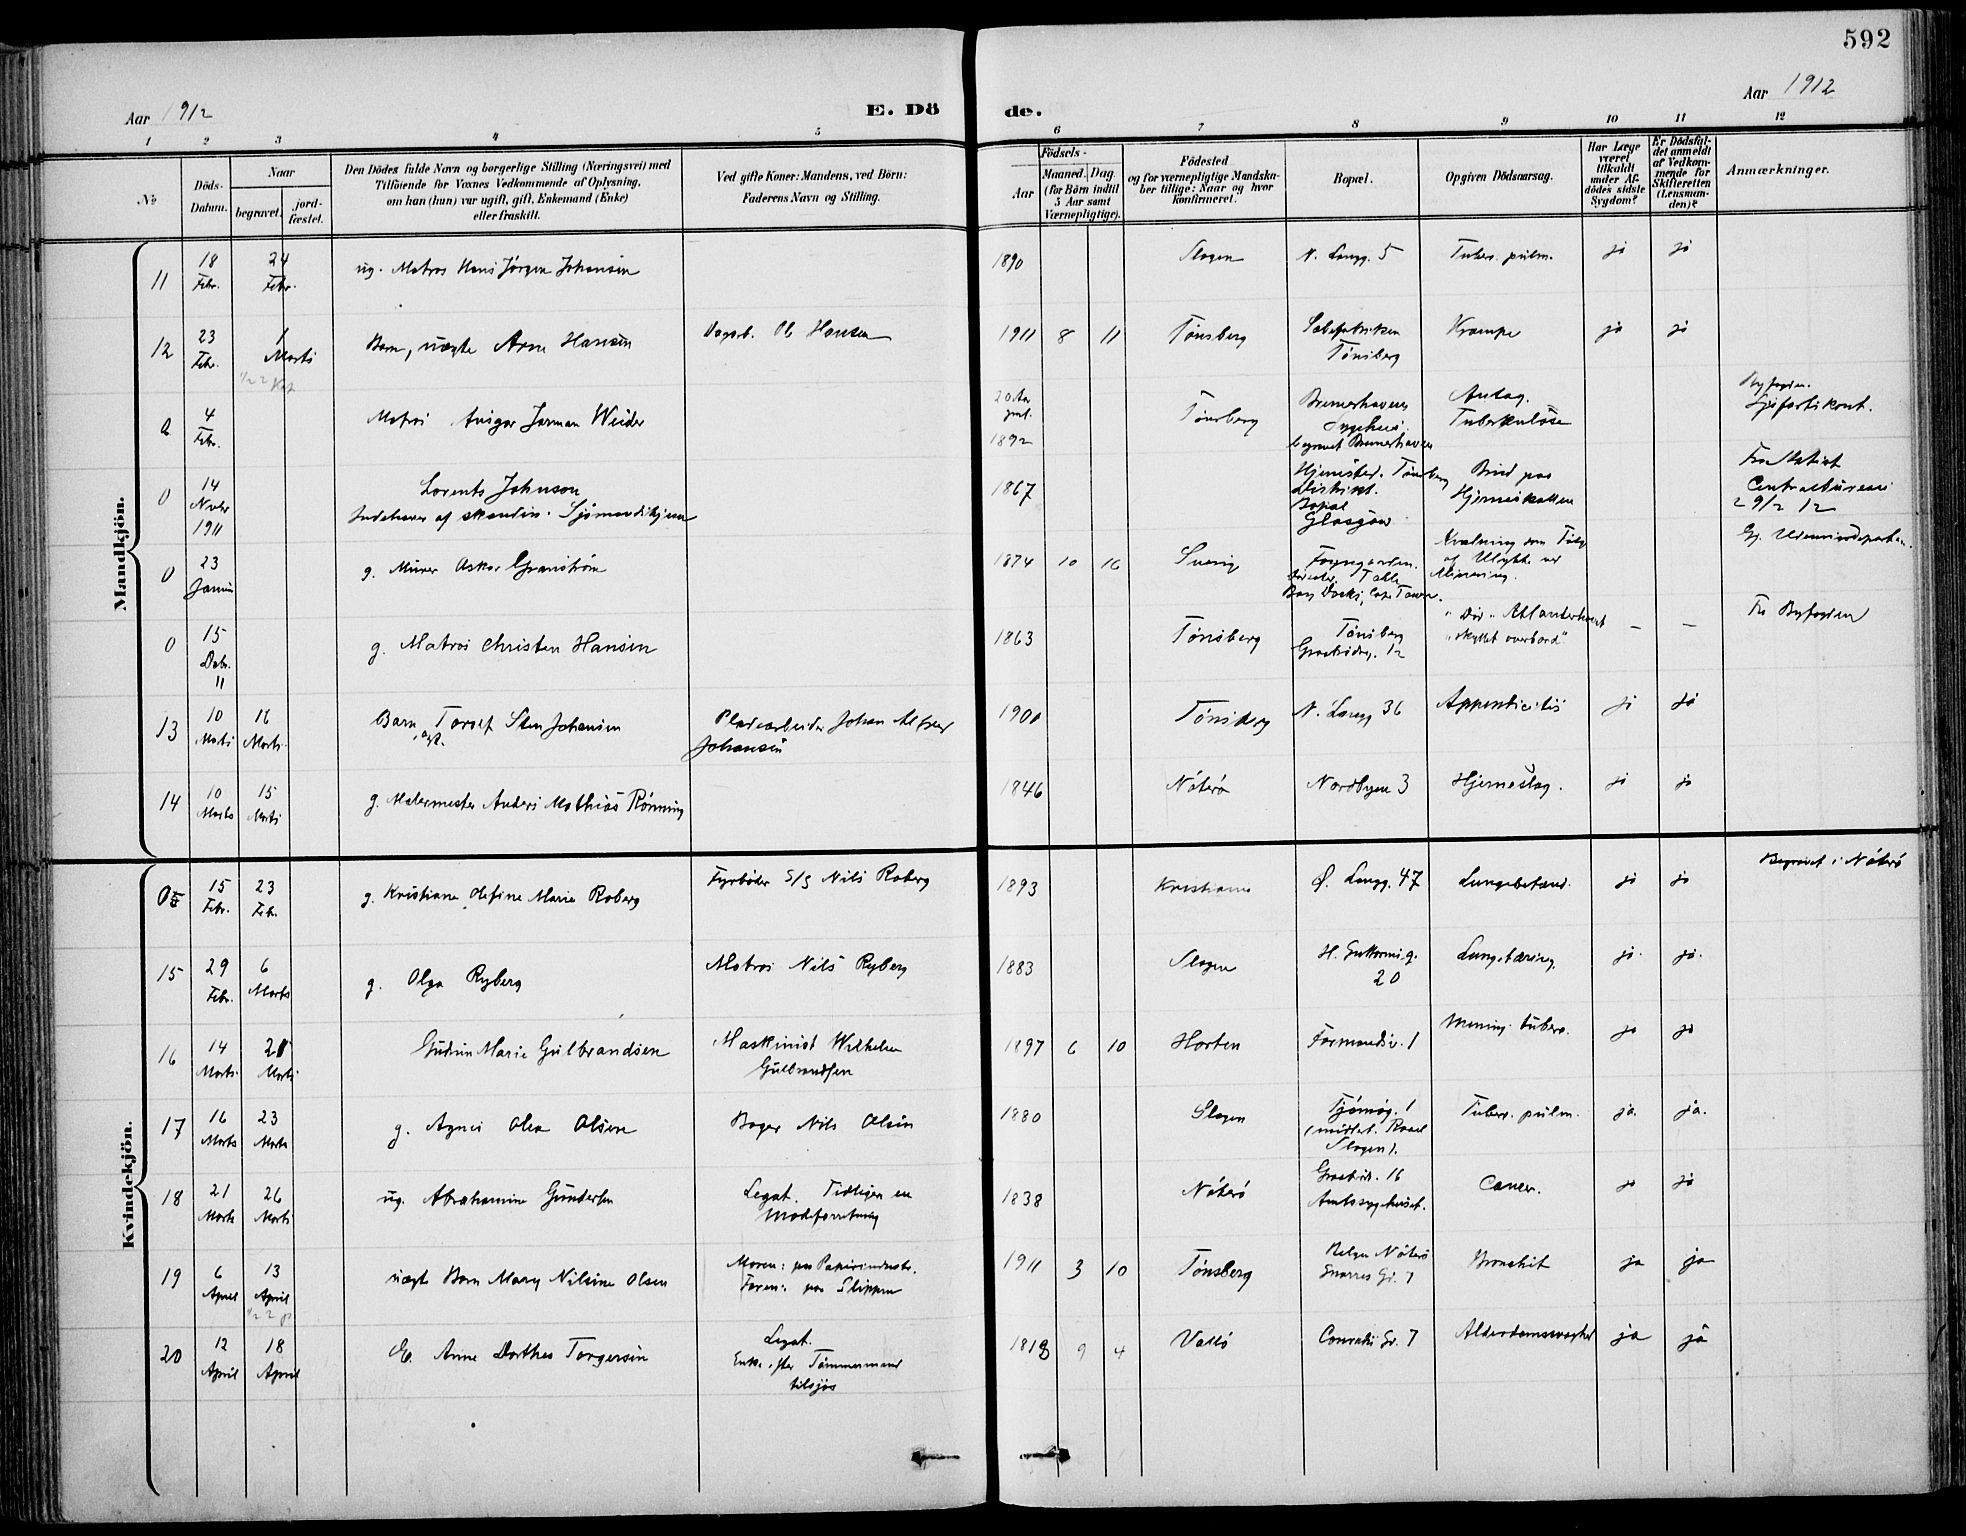 592
Aar 1912
E. Dö
de.
Aar 1912
1
2
3
4
5
6
7
8
9
10
11
12
№
Döds-
Datum.
Naar
begravet.
jord-
fæstet.
Den Dödes fulde Navn og borgerlige Stilling (Næringsvei) med
Tilföiende for Voxnes Vedkommende af Oplysning,
om han (hun) var ugift, gift, Enkemand (Enke)
eller fraskilt.
Ved gifte Koner: Mandens, ved Börn:
Faderens Navn og Stilling.
Födsels-
Aar
Maaned.
Dag.
(for Börn indtil
5 Aar samt
Værnepligtige).
Födested
og for værnepligtige Mandska-
ber tillige: Naar og hvor
konfirmeret.
Bopæl.
Opgiven Dödsaarsag.
Har Læge
været
tilkaldt
under Af-
dödes sidste
Sygdom?
Er Dödsfal-
det anmeldt
af Vedkom-
mende for
Skifteretten
(Lensman-
den)?
Anmærkninger.
Mandkjön.
11 18 Febr. 24 Febr. ug. Matros Hans Jørgen Johansen 1890 Slagen N. Langg. 5 Tuberc. pulm. ja ja
12 23 Febr. 1 Marts Barn, uægte Arne Hansen Ol. Hansen 1911 8 11 Tønsberg Tønsberg Krampe ja ja
4 Febr. Matros Ansgar 1892 Tønsberg Bremerhaven
Sygehus.
begravet Bremerhaven
Antag.
Tuberkuløse
0 14 Novbr 1911 Lorents Johnson
Indehaver af skandin.
1867 Hjemsted. Tønsberg
Distrikt.
Bopæl
Glasgow
Brud paa
Hjerneskallen
Centralbureau
29/2 12
0 23 Januar g. Murer Oskar Granstrøm 1874 10 16 Sverig
Bay Docks, Cape Town.
Kvælning som Følge
af Ulykke ved
Minering.
0 15 Debr. 11 g. Matros Christen Hansen 1863 Tønsberg Tønsberg 12
Atlanterhavet
"skyllet overbord" – –
Fra Byfogden
13 10 Marts 16 Marts. Barn Torolf Sten Johansen
ægt.
Pladearbeider Johan Alfred
Johansen
1900 Tønsberg N. Langg 36 Appendicitis ja ja
14 10 Marts 15 Marts g. Malermester Anders Mathias Rønning 1846 Nøterø Nordbyen 3 Hjerneslag. ja ja
Kvindekjön.
15 Febr. 23 Febr. g. Kristiane Marie Roberg Fyrbøder S/S Nils Roberg 1893 Kristiania Ø. Langg. 47 Lungebetænd. ja ja Begravet i Nøterø
15 29 Febr. 6 Marts g. Olga Ryberg Matros Nils Ryberg 1883 Slagen H. Guttormsg.
20
Lungetæring. ja. ja.
16 14 Marts. 21 Marts Gudrun Marie Gulbrandsen Maskinist Wilhelm
Gulbrandsen
1897 6 10 Horten Formandsv. 1 Mening. tuberc. ja ja
17 16 Marts 23 Marts g. Agnes Olea Olsen Bager Nils Olsen 1880 Slagen Tjømøg. 1
Slagen).
Tuberc. pulm. ja. ja.
18 21 Marts 26 Marts ug. Abrahamine Gundersen Legat. Tidligere en
Modeforretning
1838 Nøterø 16
Amtssygehuset.
Cancer. ja ja
19 6 April 13 April uægte Barn Mary Nilsine Olsen Moren: paa Papirindustr.
Faren: paa Slippen
1911 3 10 Tønsberg Nøterø
Snorres Gd. 7
Bronchit ja ja
20 12 April 18 April E. Anne Dorthea Torgersen Legat.
Enke efter Tømmermand
tilsjøs
1818 9 4 Vallø Conradis Gd. 7 Alderdomssvaghed ja ja